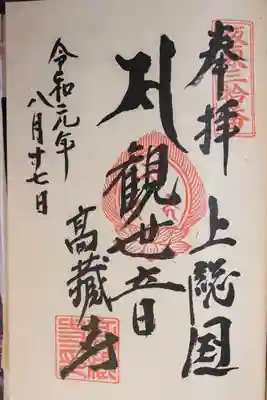 坂東三拾番
奉拝 上総国
正觀世音
高藏寺
令和元年
八月十七日